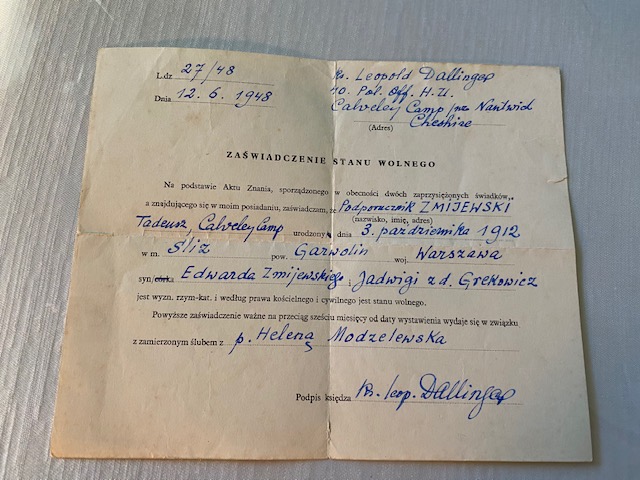 L.dz 27/48
Dnia 12. 6. 1948
Ks. Leopold Dallinger
40. Pol. Off. H.U.
Calveley Camp /nr Nantwich
(Adres) Cheshire
ZAŚWIADCZENIE STANU WOLNEGO
Na podstawie Aktu Znania, sporządzonego w obecności dwóch zaprzysiężonych świadków,
a znajdującego się w moim posiadaniu, zaświadczam, że Podporucznik ŻMIJEWSKI
(nazwisko, imię, adres)
Tadeusz, Calveley Camp urodzony dnia 3. października 1912
w m. Śliz pow. Garwolin woj. Warszawa
syn/córka Edwarda Zmijewskiego i Jadwigi z d. Grekowicz
jest wyzn. rzym-kat. i według prawa kościelnego i cywilnego jest stanu wolnego.
Powyższe zaświadczenie ważne na przeciąg sześciu miesięcy od daty wystawienia wydaje się w związku
z zamierzonym ślubem z p. Heleną Modzelewska
Podpis księdza Ks. Leop. Dallinger